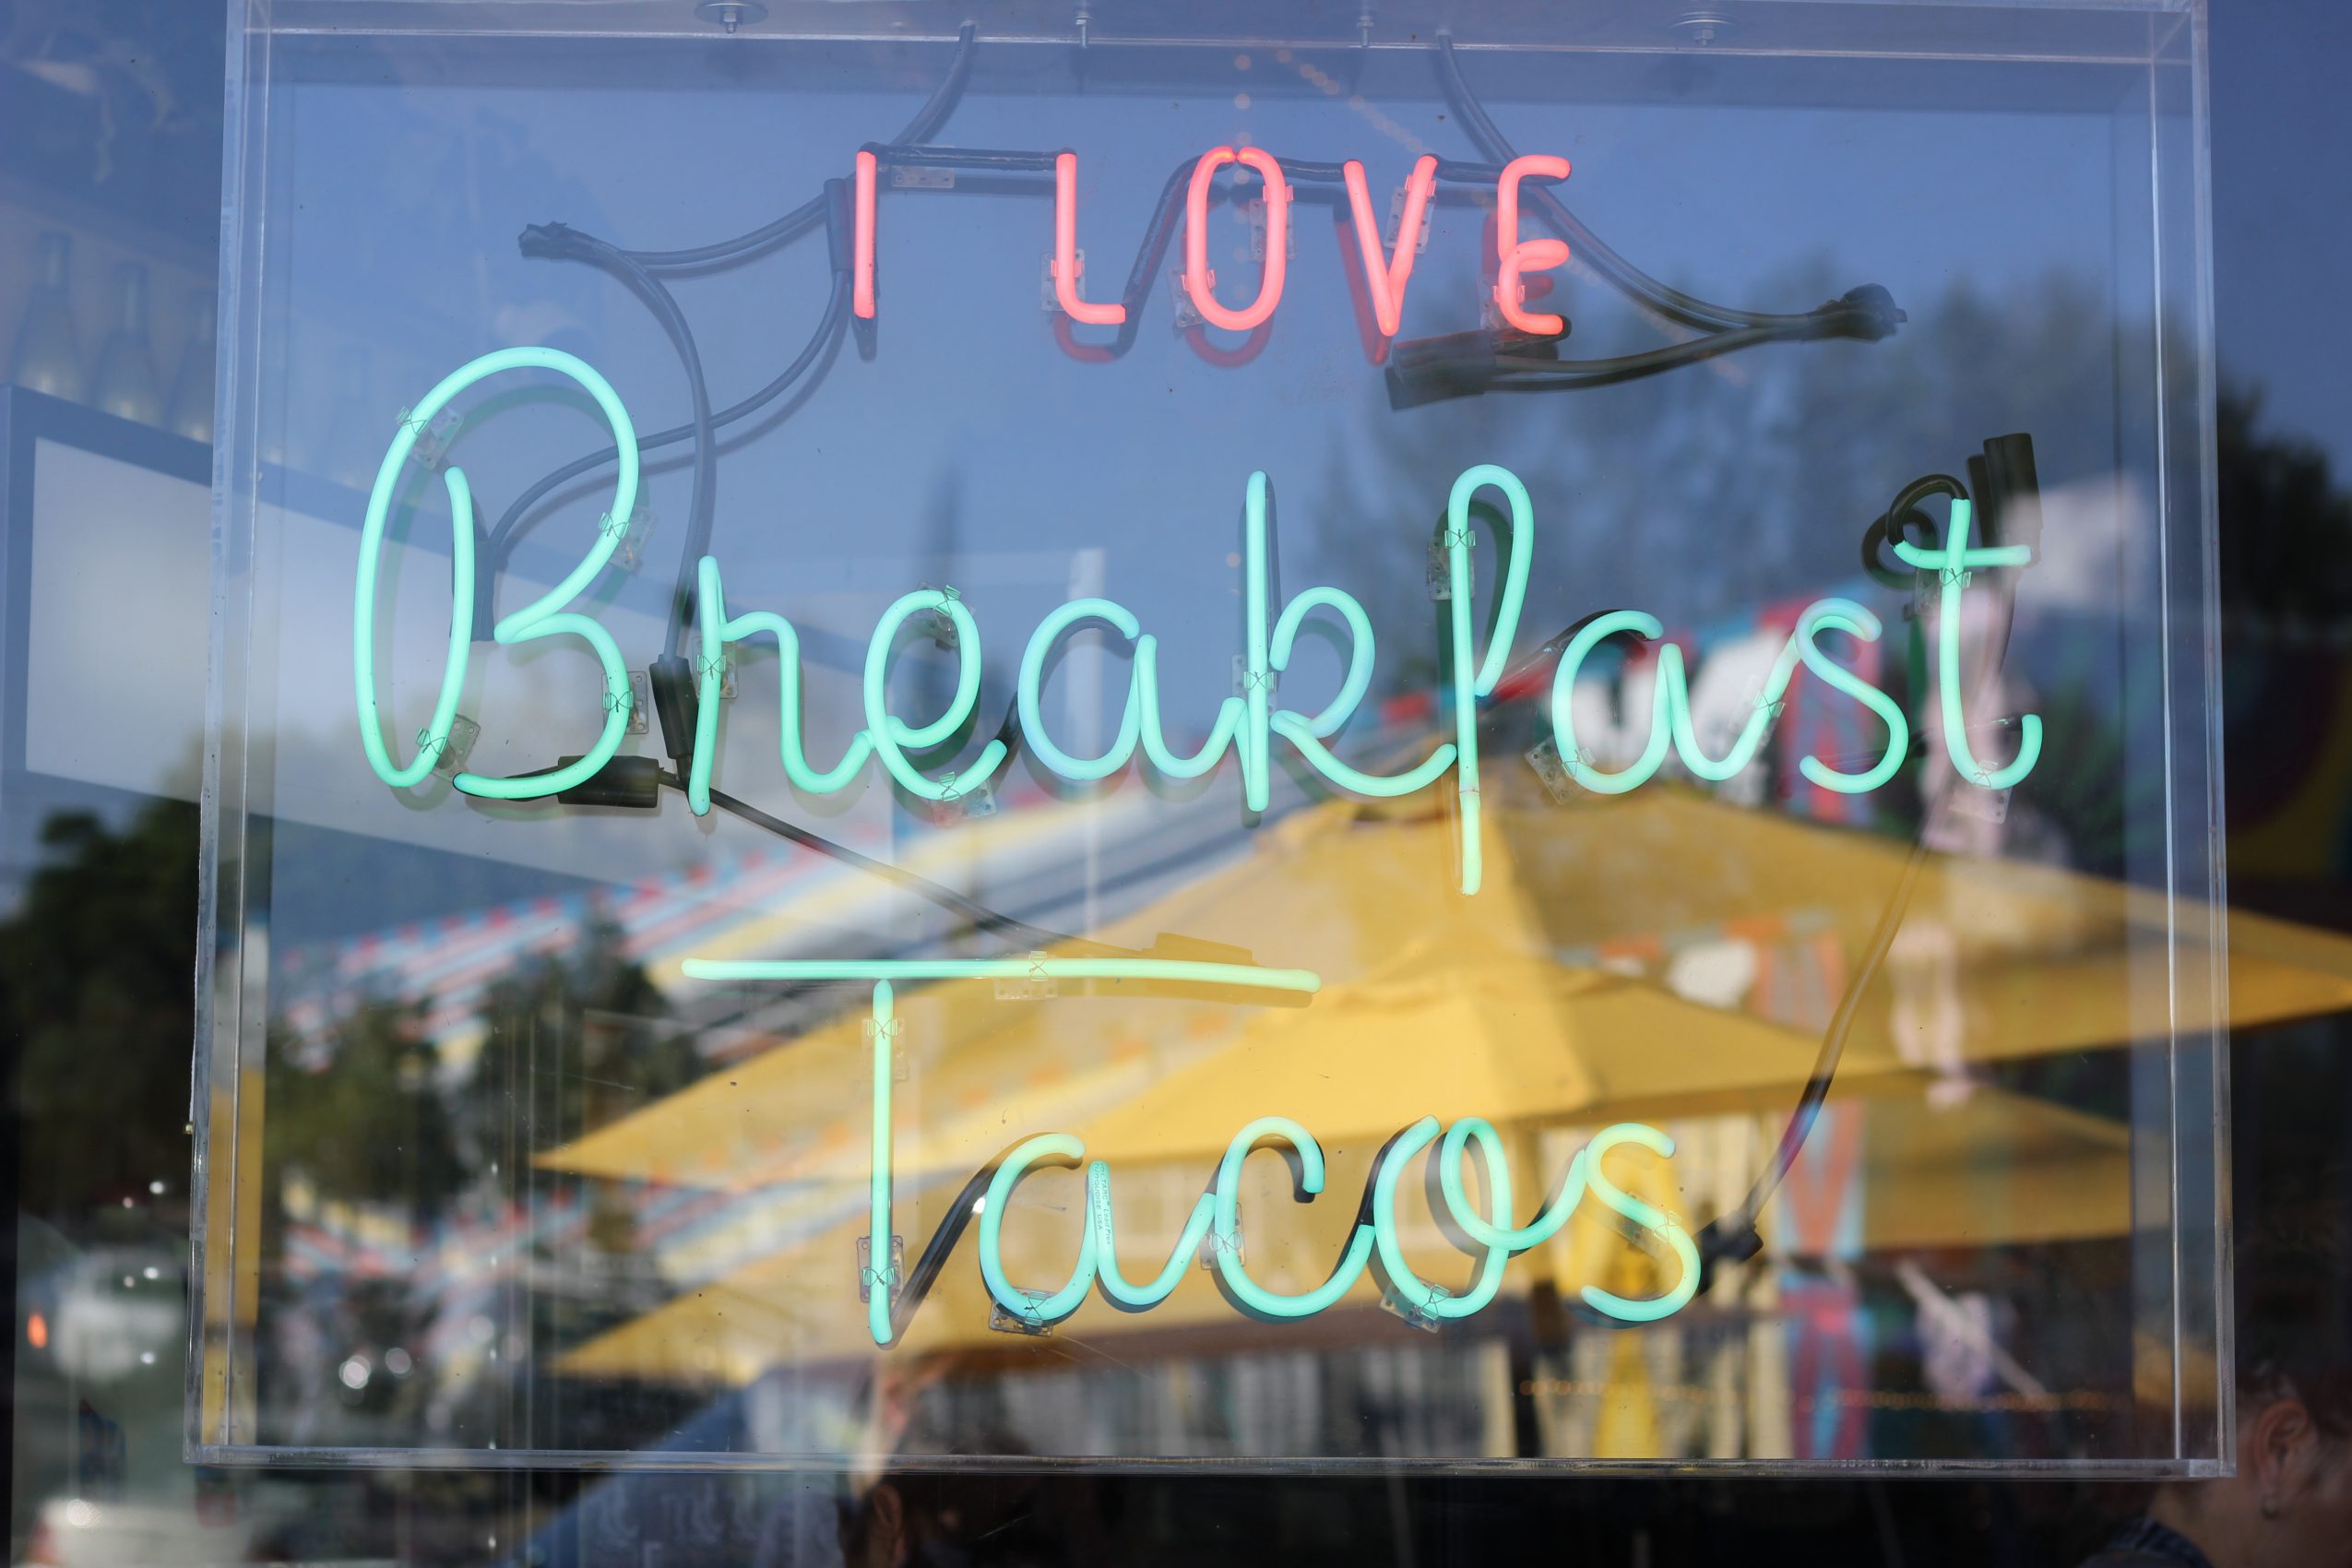 I LOVE
Breakfast
Tacos